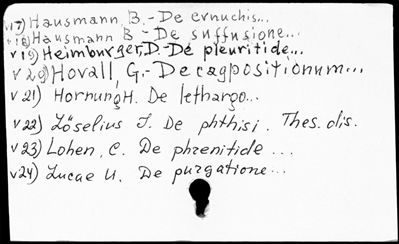 v17) Hausmann, B. - De evnuchis...
v18) Hausmann B - De suffusione...
v19) Heimburger, D. - De pleuritide...
v20) Hovall, G. - Decagpositionum...
v21) Hornung H. De lethargo...
v22) Löselius J. De phthisi. Thes. dis.
v23) Lohen, C. De phrenitide ...
v24) Lucae U. De purgatione...